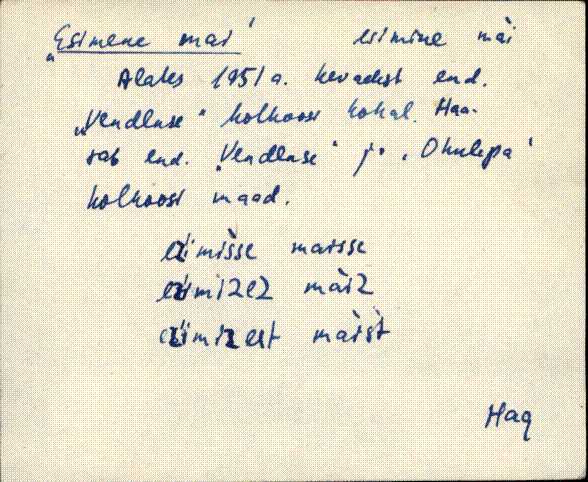 „Esimene mai" esimine mäi
Alates 1951 a. kevadest end.
„Vendluse" kolhoosi kohal. Haa-
rab end. „Vendluse" ja „Ohulepa"
kolhoosi maad.
eśimisse maisse
eśimizez mäiz
eśimizest mäist
Hag